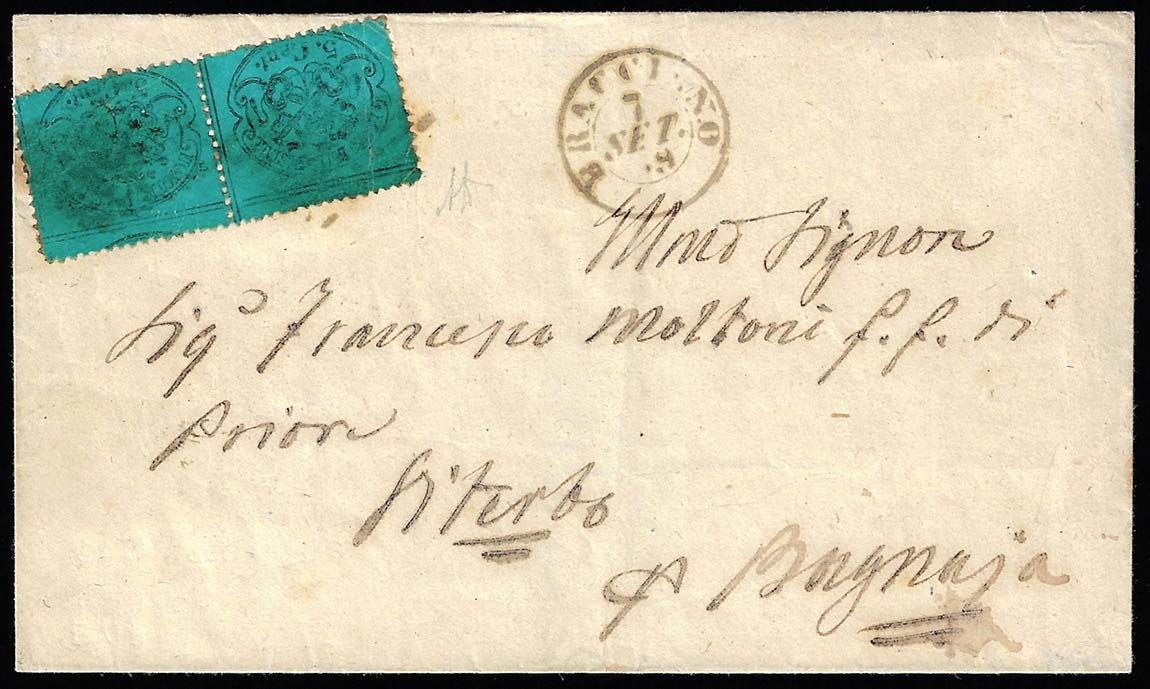 5. Cent.
BRACCIANO
7
SET.
Illmo Signor
Sigr Francesco Moltoni f. f. di
Priore
Viterbo
p Bagnaja